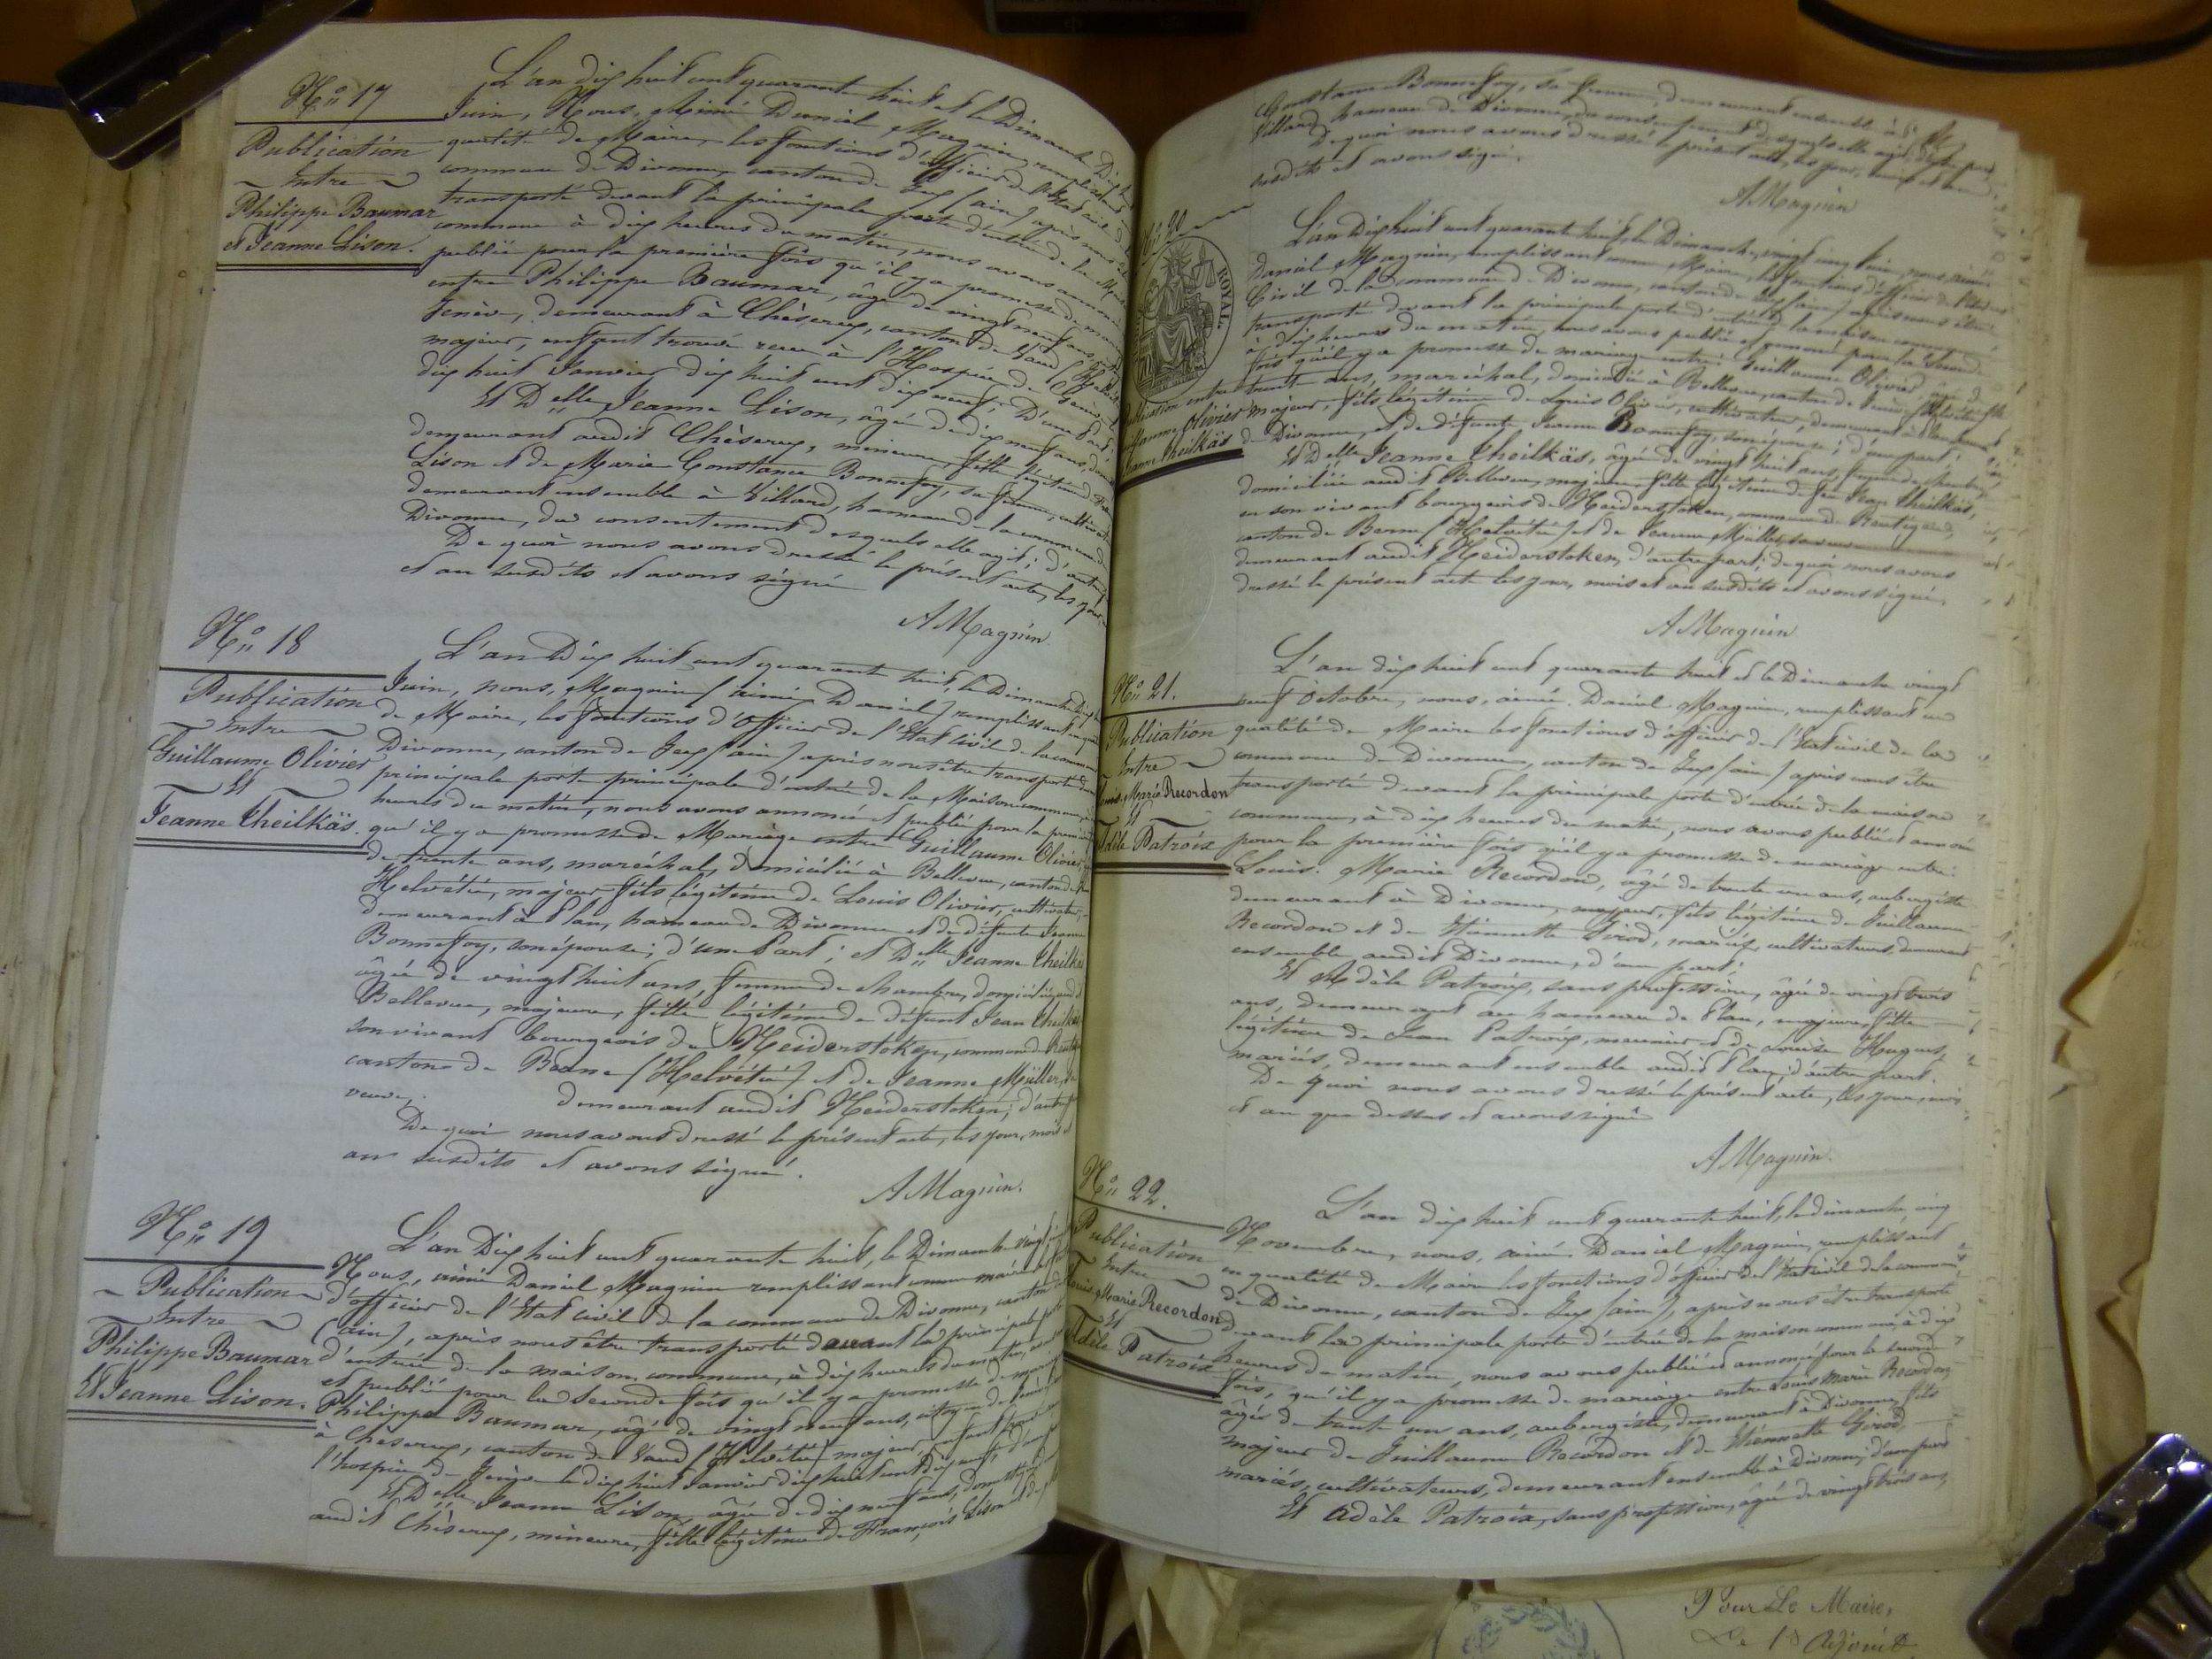 Nº 17
Publication
Entre
Philippe Baumar
et Jeanne Lison.
L'an dix huit cent quarante huit et le Dimanche Dix
Juin, Nous, Aimé Daniel Magnin, remplissant
qualité de Maire, les fonctions d'Officier de l'Etat civil de
commune de Divonne, canton de Gex (ain) après nous être
transporté devant la principale porte d'entrée de la
commune à dix heures du matin, nous avons annoncé
publié pour la première fois qu'il y a promesse de mariage
entre Philippe Baumar, âgé de vingt neuf ans,
Genève, demeurant à Chéserex, canton de Vaud
majeur, enfant trouvé reçu à l'Hospice de Genève le
dix huit Janvier dix huit cent dix neuf; D'une part;
Et Delle Jeanne Lison, âgée de dix neuf ans,
demeurant audit Chéserex, mineure, fille légitime de
Lison et de Marie Constance Bonnefoy, sa femme, cultivateurs
demeurant ensemble à Villard, hameau de la commune de
Divonne, du consentement desquels elle agit; d'autre
De quoi nous avons dressé le présent acte, les jour,
et an susdits et avons signé
AMagnin
Nº 18
Publication
Entre
Guillaume Olivier
Et
Jeanne Cheilkäs.
L'an Dix huit cent quarante huit, le Dimanche
Juin, nous, Magnin (aimé Daniel) remplissant en qualité
de Maire, les fonctions d'Officier de l'Etat civil de la commune
Divonne, canton de Gex (ain) après nous être transporté
principale porte principale d'entrée de la Maison commune,
heures du matin, nous avons annoncé et publié pour la première
qu'il y a promesse de Mariage entre Guillaume Olivier,
de trente ans, maréchal, domicilié à Bellevue, canton de
Helvétie, majeur fils légitime de Louis Olivier, cultivateur,
demeurant à Plan, hameau de Divonne et de défunte Jeanne
Bonnefoy, son épouse; d'une Part; et Delle Jeanne Cheilkäs
âgée de vingt huit ans, femme de chambre, domiciliée audit
Bellevue, majeure, fille légitime de défunt Jean Cheilkäs
son vivant bourgeois de Heiderstoken, commune de
canton de Berne (Helvétie) et de Jeanne Müller, sa
veuve, demeurant audit Heiderstoken; d'autre part
De quoi nous avons dressé le présent acte, les jour, mois et
an susdits et avons signé.
AMagnin.
Nº 19
Publication
Entre
Philippe Baumar
Et Jeanne Lison.
L'an Dix huit cent quarante huit, le Dimanche vingt
Nous, aimé Daniel Magnin remplissant comme maire
d'officier de l'Etat civil de la commune de Divonne, canton de
(ain), après nous être transporté devant la principale porte
d'entrée de la maison commune, à dix heures du matin, avons
et publié pour la seconde fois qu'il y a promesse de mariage
Philippe Baumar, âgé de vingt neuf ans, citoyen de Genève
à Chéserex, canton de Vaud (Helvétie) majeur, enfant
l'hospice de Genève le dix huit Janvier dix huit cent dix neuf; d'une
Et Delle Jeanne Lison, âgée de dix neuf ans,
audit Chéserex, mineure, fille légitime de François Lison et de
Constance Bonnefoy, sa femme, demeurant ensemble à
Villard, hameau de Divonne, du consentement desquels elle agit, d'autre part
De quoi nous avons dressé le présent acte, les jour, mois et an
susdits et avons signé.
AMagnin
Nº 20
ROYAL
Publication entre
Guillaume Olivier
Jeanne Cheilkäs
L'an Dix huit cent quarante huit, le Dimanche, vingt cinq Juin, nous, aimé
Daniel Magnin, remplissant comme Maire, les fonctions d'officier de l'Etat
Civil de la commune de Divonne, canton de Gex (ain) après nous être
transporté devant la principale porte d'entrée de la maison commune
à dix heures du matin, nous avons publié et annoncé pour la seconde
fois qu'il y a promesse de mariage entre: Guillaume Olivier, âgé de
trente ans, maréchal, domicilié à Bellevue, canton de Genève (Helvétie)
majeur, fils légitime de Louis Olivier, cultivateur, demeurant à Plan
de Divonne, et de défunte Jeanne Bonnefoy, son épouse; d'une part;
Et Delle Jeanne Cheilkäs, âgée de vingt huit ans, femme de chambre,
domiciliée audit Bellevue, majeure, fille légitime de feu Jean Cheilkäs,
en son vivant bourgeois de Heiderstoken, commune de
canton de Berne (Helvétie) et de Jeanne Müller, sa veuve
demeurant audit Heiderstoken, d'autre part; de quoi nous avons
dressé le présent acte les jour, mois et an susdits et avons signé.
AMagnin
Nº 21.
Publication
Entre
Louis Marie Recordon
Et
Adèle Patroix
L'an dix huit cent quarante huit et le Dimanche vingt
neuf Octobre, nous, aimé Daniel Magnin, remplissant en
qualité de Maire les fonctions d'officier de l'Etat civil de la
commune de Divonne, canton de Gex (ain) après nous être
transporté devant la principale porte d'entrée de la maison
commune, à dix heures du matin, nous avons publié et annoncé
pour la première fois qu'il y a promesse de mariage entre:
Louis Marie Recordon, âgé de trente un ans, aubergiste
demeurant à Divonne, majeur, fils légitime de Guillaume
Recordon et de Etiennette Girod, mariés, cultivateurs, demeurant
ensemble audit Divonne, d'une part;
Et Adèle Patroix, sans profession, âgée de vingt trois
ans, demeurant au hameau de Plan, majeure fille
légitime de Jean Patroix, meunier et de Louise Hugues,
mariés, demeurant ensemble audit Plan, d'autre part.
De quoi nous avons dressé le présent acte, les jour, mois
et an que dessus et avons signé
AMagnin.
Nº 22.
Publication
Entre
Louis Marie Recordon
Et
Adèle Patroix
L'an dix huit cent quarante huit, le dimanche, cinq
Novembre, nous, aimé Daniel Magnin, remplissant
en qualité de Maire les fonctions d'officier de l'Etat civil de la commune
de Divonne, canton de Gex (ain), après nous être transporté
devant la principale porte d'entrée de la maison commune, à dix
heures du matin, nous avons publié et annoncé pour la seconde
fois, qu'il y a promesse de mariage entre Louis Marie Recordon,
âgé de trente un ans, aubergiste, demeurant à Divonne, fils
majeur de Guillaume Recordon et de Etiennette Girod,
mariés, cultivateurs, demeurant ensemble à Divonne; d'une part
Et Adèle Patroix, sans profession, âgée de vingt trois ans,
Pour Le Maire,
Le 1er Adjoint